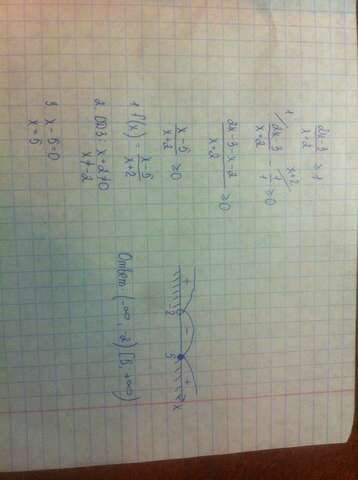 2x-3/x+2 ≥ 1
2x-3/x+2 - 1/1 ≥ 0
2x-3-x-2/x+2 ≥ 0
x-5/x+2 ≥ 0
1 f(x) = x-5/x+2
2. ОДЗ: x+2≠0
x≠-2
3 x-5=0
x=5
+ - + 
-2 5 x
Ответ: (-∞; -2) [5; +∞)